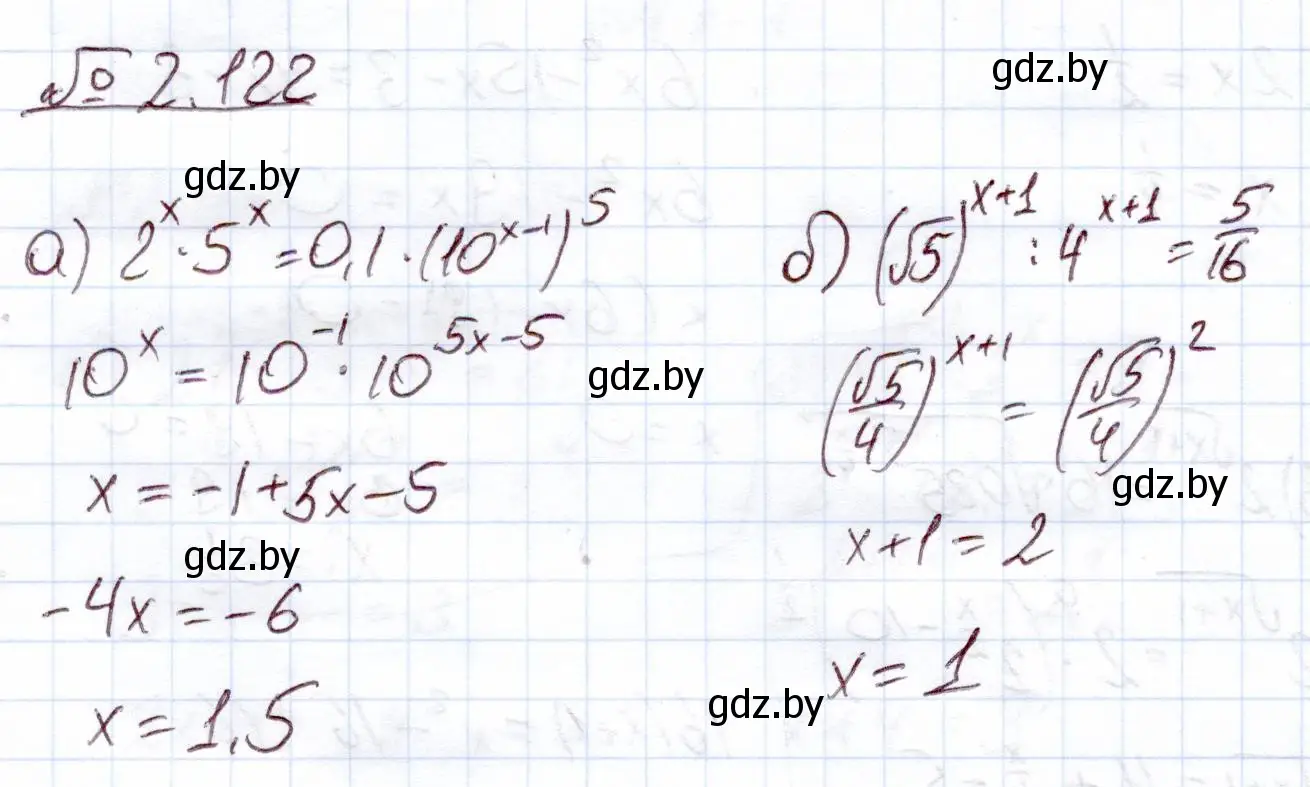 № 2.122
gdz.by
gdz.by
а) 2^x · 5^x = 0,1 · (10^(x-1))^5
10^x = 10^(-1) · 10^(5x-5)
gdz.by
x = -1+5x-5
gdz.by
-4x = -6
x = 1,5
б) (√5)^(x+1) : 4^(x+1) = 5/16
(√5/4)^(x+1) = (√5/4)^2
gdz.by
x+1 = 2
x = 1
gdz.by